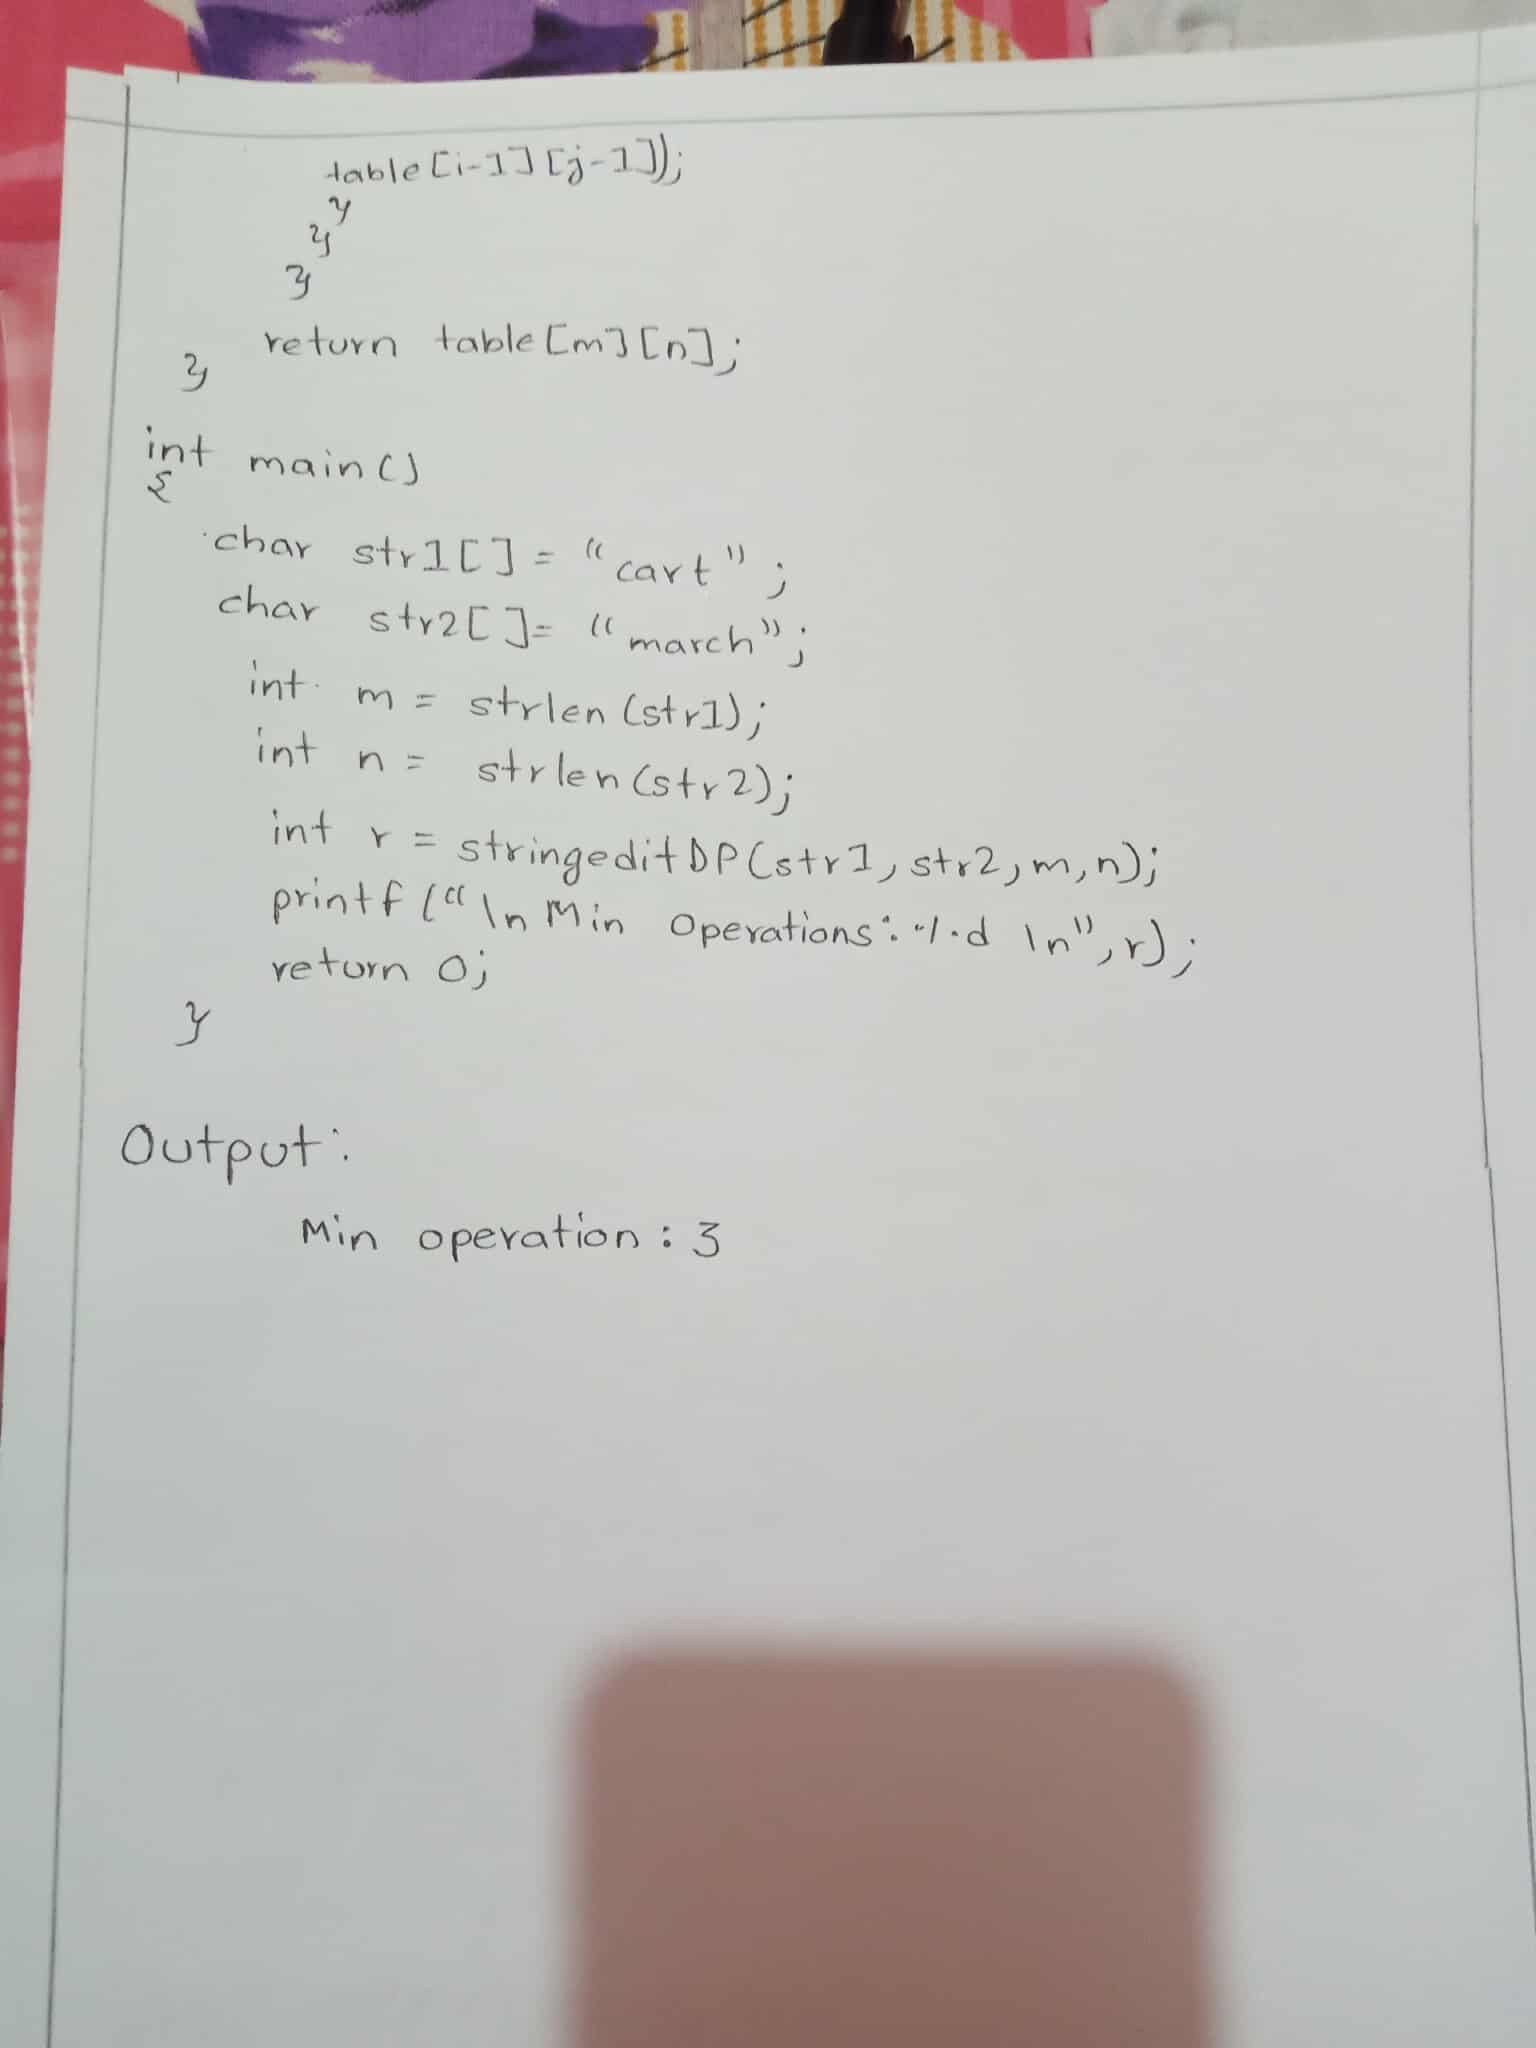 table[i-1][j-1]);
}
}
}
return table[m][n];
}
int main()
{
char str1[] = "cart";
char str2[]= "march";
int m = strlen(str1);
int n = strlen(str2);
int r = stringeditDP(str1,str2,m,n);
printf("\n Min Operations:%d \n",r);
return 0;
}
Output:
Min operation : 3